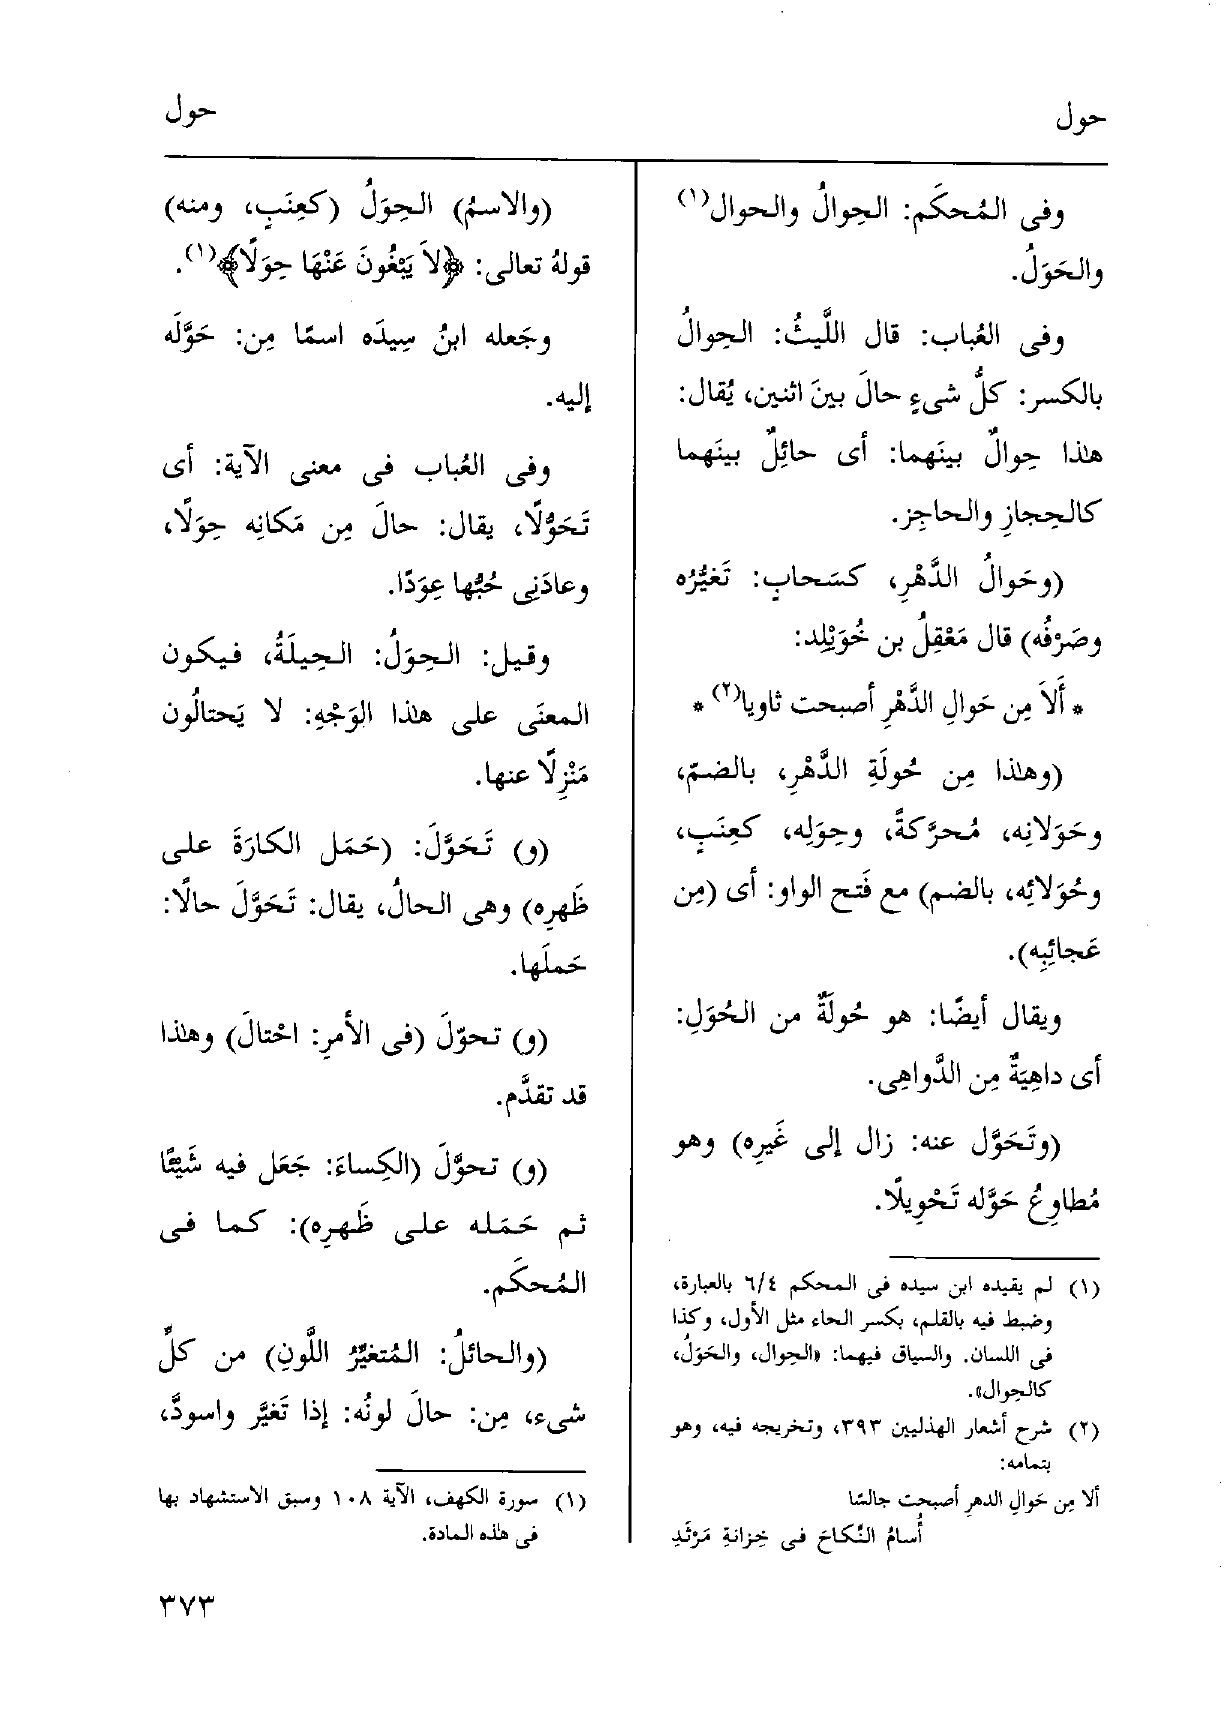 حول
حول
وفى المُحكَم: الحِوالُ والحوال(١)
والحَوَلُ.
وفى العُباب: قال اللَّيثُ: الحِوالُ
بالكسر: كلُّ شىءٍ حالَ بينَ اثنين، يُقال:
هٰذا حِوالٌ بينَهما: أى حائِلٌ بينَهما
كالحِجازِ والحاجِز.
(وحَوالُ الدَّهْرِ، كسَحابٍ: تَغَيُّرُه
وصَرْفُه) قال مَعْقِلُ بن خُوَيْلِد:
* أَلاَ مِن حَوالِ الدَّهْرِ أصبحت ثاويا(٢) *
(وهٰذا مِن حُولَةِ الدَّهْرِ، بالضمّ،
وحَوَلانِه، مُحرَّكةً، وحِوَلِه، كعِنَبٍ،
وحُوَلائِه، بالضم) مع فَتح الواو: أى (مِن
عَجائِبِه).
ويقال أيضًا: هو حُولَةٌ من الحُوَلِ:
أى داهِيَةٌ مِن الدَّواهِى.
(وتَحَوَّل عنه: زال إلى غَيرِه) وهو
مُطاوِعُ حَوَّله تَحْوِيلًا.
(١) لم يقيده ابن سيده فى المحكم ٦/٤ بالعبارة،
وضبط فيه بالقلم، بكسر الحاء مثل الأول، وكذا
فى اللسان. والسياق فيهما: «الحِوال، والحَوَلُ،
كالحِوال».
(٢) شرح أشعار الهذليين ٣٩٣، وتخريجه فيه، وهو
بتمامه:
ألا مِن حَوالِ الدهرِ أصبحت جالسًا
أُسامُ النِّكاحَ فى خِزانةِ مَرْثَدِ
(والاسمُ) الحِوَلُ (كعِنَبٍ، ومنه)
قولهُ تعالى: ﴿لاَ يَبْغُونَ عَنْهَا حِوَلًا﴾(١).
وجَعله ابنُ سِيدَه اسمًا مِن: حَوَّلَه
إليه.
وفى العُباب فى معنى الآية: أى
تَحَوُّلًا، يقال: حالَ مِن مَكانِه حِوَلًا،
وعادَنِى حُبُّها عِوَدًا.
وقيل: الحِوَلُ: الحِيلَةُ، فيكون
المعنَى على هٰذا الوَجْهِ: لا يَحتالُون
مَنْزِلًا عنها.
(و) تَحَوَّلَ: (حَمَل الكارَةَ على
ظَهرِه) وهى الحالُ، يقال: تَحَوَّلَ حالًا:
حَملَها.
(و) تحوّلَ (فى الأمرِ: احْتالَ) وهٰذا
قد تقدَّم.
(و) تحوَّلَ (الكِساءَ: جَعَل فيه شَيْئًا
ثم حَمَله على ظَهرِه): كما فى
المُحكَم.
(والحائلُ: المُتغيِّرُ اللَّونِ) من كلِّ
شىء، مِن: حالَ لونُه: إذا تَغيَّر واسودَّ،
(١) سورة الكهف، الآية ١٠٨ وسبق الاستشهاد بها
فى هٰذه المادة.
٣٧٣